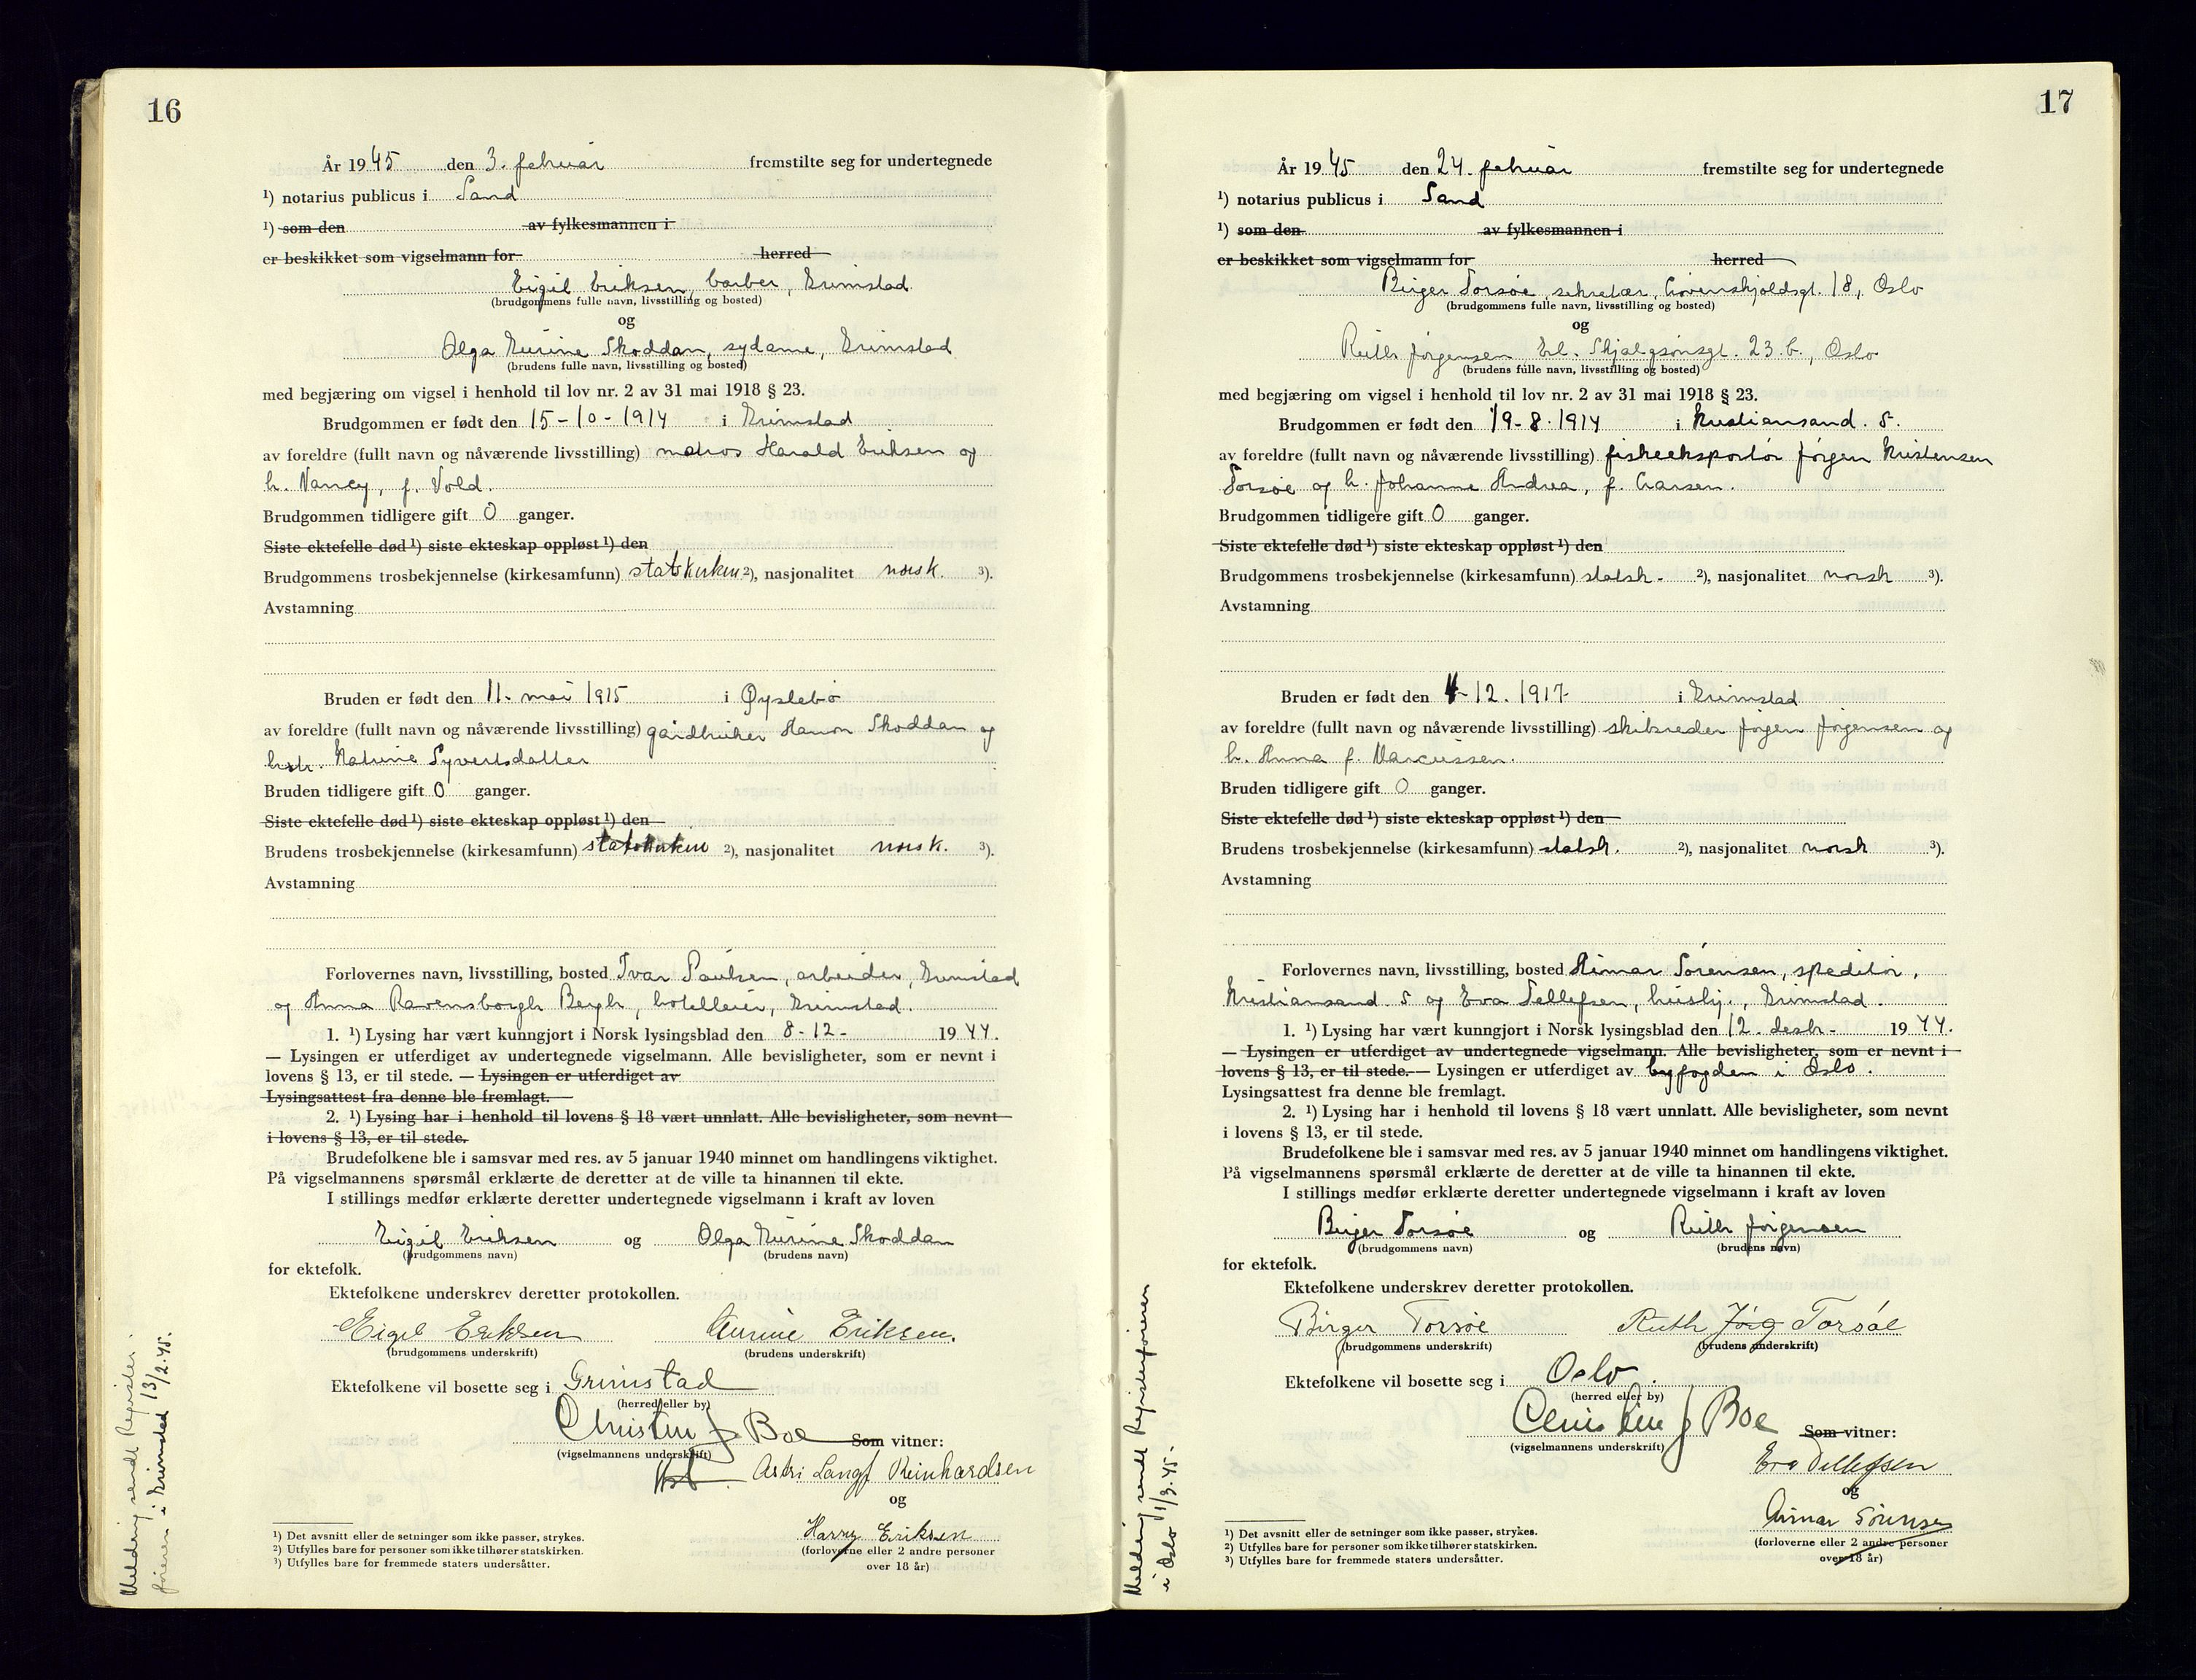 16
År 1945 den 3. februar fremstilte seg for undertegnede
¹) notarius publicus i Sand
¹) som den av fylkesmannen i
er beskikket som vigselmann for herred
Eigil Eriksen, barber, Grimstad
(brudgommens fulle navn, livsstilling og bosted)
og
Olga Gurine Skoddan, sydame, Grimstad
(brudens fulle navn, livsstilling og bosted)
med begjæring om vigsel i henhold til lov nr. 2 av 31 mai 1918 § 23.
Brudgommen er født den 15-10-1914 i Grimstad
av foreldre (fullt navn og nåværende livsstilling) matros Harald Eriksen og
h. Nancy, f. Vold.
Brudgommen tidligere gift 0 ganger.
Siste ektefelle død ¹) siste ekteskap oppløst ¹) den
Brudgommens trosbekjennelse (kirkesamfunn) statskirken ²), nasjonalitet norsk. ³).
Avstamning
Bruden er født den 11. mai 1915 i Øyslebø
av foreldre (fullt navn og nåværende livsstilling) gårdbruker Hanon Skoddan og
hstr. Katrine Syvertsdatter
Bruden tidligere gift 0 ganger.
Siste ektefelle død ¹) siste ekteskap oppløst ¹) den
Brudens trosbekjennelse (kirkesamfunn) statskirken ²), nasjonalitet norsk. ³).
Avstamning
Forlovernes navn, livsstilling, bosted Ivar Paulsen, arbeider, Grimstad
og Anna Ravensborgh Bergh, hotelleier, Grimstad.
1. ¹) Lysing har vært kunngjort i Norsk lysingsblad den 8-12- 1944.
— Lysingen er utferdiget av undertegnede vigselmann. Alle bevisligheter, som er nevnt i
lovens § 13, er til stede. — Lysingen er utferdiget av
Lysingsattest fra denne ble fremlagt.
2. ¹) Lysing har i henhold til lovens § 18 vært unnlatt. Alle bevisligheter, som nevnt
i lovens § 13, er til stede.
Brudefolkene ble i samsvar med res. av 5 januar 1940 minnet om handlingens viktighet.
På vigselmannens spørsmål erklærte de deretter at de ville ta hinannen til ekte.
I stillings medfør erklærte deretter undertegnede vigselmann i kraft av loven
Eigil Eriksen og Olga Gurine Skoddan
(brudgommens navn) (brudens navn)
for ektefolk.
Ektefolkene underskrev deretter protokollen.
Eigil Eriksen Gurine Eriksen.
(brudgommens underskrift) (brudens underskrift)
Ektefolkene vil bosette seg i Grimstad
(herred eller by)
Christen J Boe Som vitner:
(vigselmannens underskrift)
Astri Langf Reinhardsen
og
Harry Eriksen
(forloverne eller 2 andre personer
over 18 år)
¹) Det avsnitt eller de setninger som ikke passer, strykes.
²) Utfylles bare for personer som ikke tilhører statskirken.
³) Utfylles bare for fremmede staters undersåtter.
Melding sendt Register-
føreren i Grimstad 13/2.45.
17
År 1945 den 24. februar fremstilte seg for undertegnede
¹) notarius publicus i Sand
¹) som den av fylkesmannen i
er beskikket som vigselmann for herred
Birger Torsøe, sekretær, Løvenskjoldsgt. 18, Oslo
(brudgommens fulle navn, livsstilling og bosted)
og
Ruth Jørgensen Erl. Skjalgsønsgt. 23.b., Oslo
(brudens fulle navn, livsstilling og bosted)
med begjæring om vigsel i henhold til lov nr. 2 av 31 mai 1918 § 23.
Brudgommen er født den 19-8-1914 i Kristiansand. S.
av foreldre (fullt navn og nåværende livsstilling) fiskeeksportør Jørgen Kristensen
Torsøe og h. Johanne Andrea, f. Larsen.
Brudgommen tidligere gift 0 ganger.
Siste ektefelle død ¹) siste ekteskap oppløst ¹) den
Brudgommens trosbekjennelse (kirkesamfunn) statsk. ²), nasjonalitet norsk ³).
Avstamning
Bruden er født den -12. 1917 i Grimstad
av foreldre (fullt navn og nåværende livsstilling) skibsreder Jørgen Jørgensen og
h. Anna f. Marcussen.
Bruden tidligere gift 0 ganger.
Siste ektefelle død ¹) siste ekteskap oppløst ¹) den
Brudens trosbekjennelse (kirkesamfunn) statsk. ²), nasjonalitet norsk ³).
Avstamning
Forlovernes navn, livsstilling, bosted Aimar Sørensen, speditør,
Kristiansand. S og Eva Tellefsen, hushj., Grimstad.
1. ¹) Lysing har vært kunngjort i Norsk lysingsblad den 12. desbr. 1944.
— Lysingen er utferdiget av undertegnede vigselmann. Alle bevisligheter, som er nevnt i
lovens § 13, er til stede. — Lysingen er utferdiget av byfogden i Oslo.
Lysingsattest fra denne ble fremlagt.
2. ¹) Lysing har i henhold til lovens § 18 vært unnlatt. Alle bevisligheter, som nevnt
i lovens § 13, er til stede.
Brudefolkene ble i samsvar med res. av 5 januar 1940 minnet om handlingens viktighet.
På vigselmannens spørsmål erklærte de deretter at de ville ta hinannen til ekte.
I stillings medfør erklærte deretter undertegnede vigselmann i kraft av loven
Birger Torsøe og Ruth Jørgensen
(brudgommens navn) (brudens navn)
for ektefolk.
Ektefolkene underskrev deretter protokollen.
Birger Torsøe Ruth Jørg Torsøe
(brudgommens underskrift) (brudens underskrift)
Ektefolkene vil bosette seg i Oslo.
(herred eller by)
Christen J Boe Som vitner:
(vigselmannens underskrift)
Eva Tellefsen
og
Aimar Sørensen
(forloverne eller 2 andre personer
over 18 år)
¹) Det avsnitt eller de setninger som ikke passer, strykes.
²) Utfylles bare for personer som ikke tilhører statskirken.
³) Utfylles bare for fremmede staters undersåtter.
Melding sendt Registerføreren
i Oslo 1/3.45.